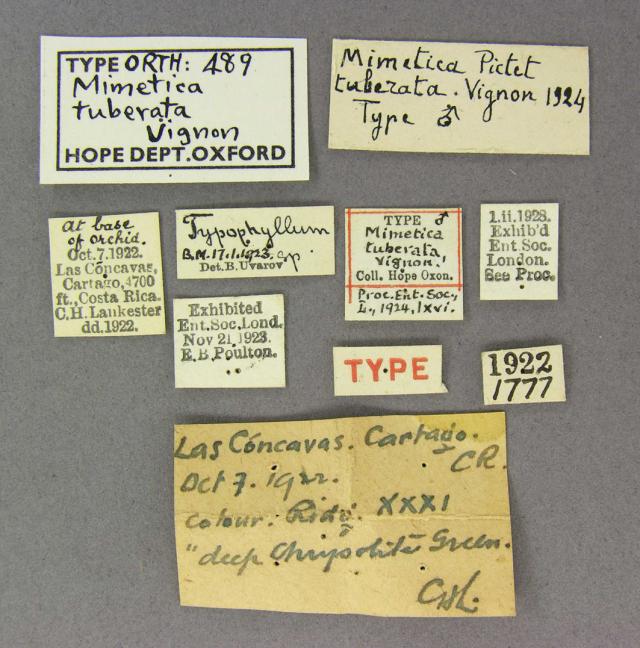 TYPE ORTH: 489
Mimetica
tuberata
Vignon
HOPE DEPT.OXFORD
Mimetica Pictet
tuberata. Vignon 1924
Type ♂
At base
of orchid.
Oct.7.1922.
Las Cóncavas,
Cartago,4700
ft.,Costa Rica.
C.H.Lankester
dd.1922.
Typophyllum
sp.
B.M.17.1.1923.
Det.B.Uvarov
TYPE ♂
Mimetica
tuberata,
Vignon,
Coll. Hope Oxon.
Proc.Ent.Soc.,
L., 1924, lxvi.
1.ii.1928.
Exhib'd
Ent.Soc.
London.
See Proc.
Exhibited
Ent.Soc.Lond.
Nov 21,1923.
E.B.Poulton.
TYPE
1922
1777
Las Cóncavas. Cartago.
CR.
Oct 7. 1922.
Colour. Ridg. XXXI
"deep Chrysolite Green.
CHL.